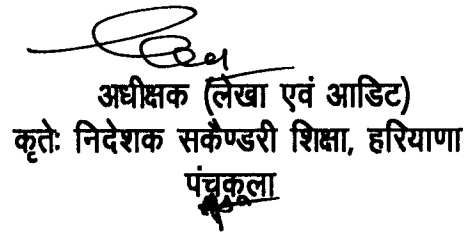 अधीक्षक (लेखा एवं आडिट)
कृतेः निदेशक सकैण्डरी शिक्षा, हरियाणा
पंचकूला